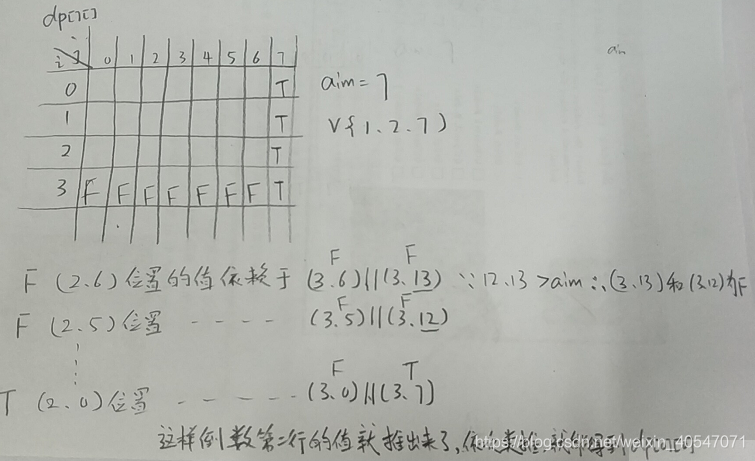 dp[][]
i j 0 1 2 3 4 5 6 7
0 T
1 T
2 T
3 F F F F F F F T
aim=7
V{1.2.7)
aim
F F
F (2.6)位置的值依赖于 (3.6)||(3.13) ∵12.13>aim∴(3.13)和(3.12)为F
F F
F (2.5)位置 - - - - (3.5)||(3.12)
F T
T (2.0)位置 - - - - - - (3.0)||(3.7)
这样倒数第二行的值就推出来了,依次类推
https://blog.csdn.net/weixin_40547071